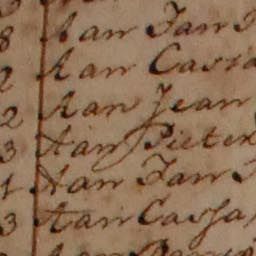 8 Aan Jan
2 Aan Casia
2 Aan Jean
3 Aan Pieter
1 Aan Jan
3 Aan Cassa
Aan